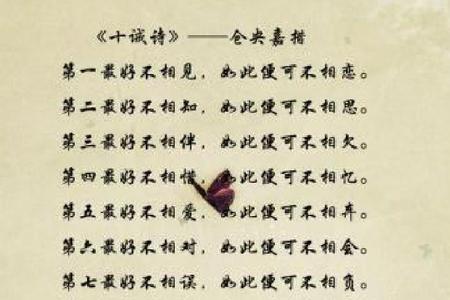 《十诫诗》——仓央嘉措
第一最好不相见，如此便可不相恋。
第二最好不相知，如此便可不相思。
第三最好不相伴，如此便可不相欠。
第四最好不相惜，如此便可不相忆。
第五最好不相爱，如此便可不相弃。
第六最好不相对，如此便可不相会。
第七最好不相误，如此便可不相负。